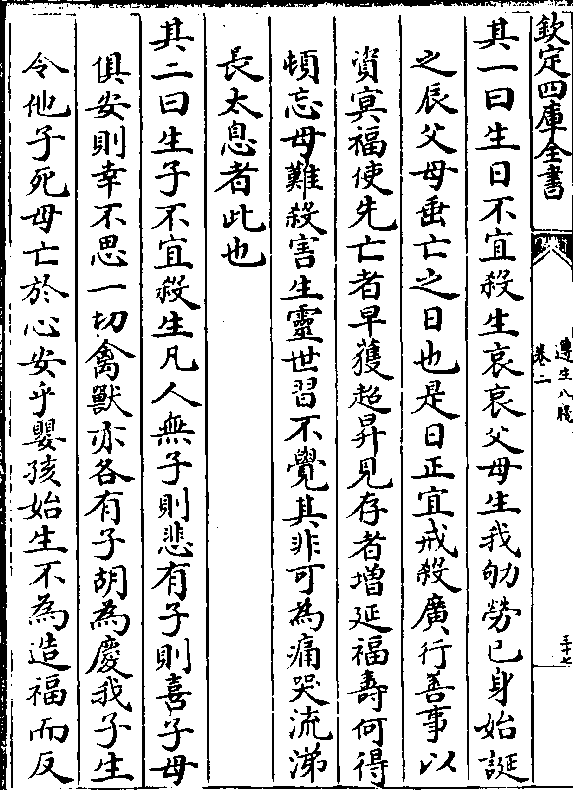 欽定四庫全書
遵生八牋
卷二
三十七
其一曰生日不宜殺生哀哀父母生我劬勞己身始誕
之辰父母垂亡之日也是日正宜戒殺廣行善事以
資冥福使先亡者早獲超昇見存者增延福壽何得
頓忘母難殺害生靈世習不覺其非可為痛哭流涕
長太息者此也
其二曰生子不宜殺生凡人無子則悲有子則喜子母
俱安則幸不思一切禽獸亦各有子胡為慶我子生
令他子死母亡於心安乎嬰孩始生不為造福而反